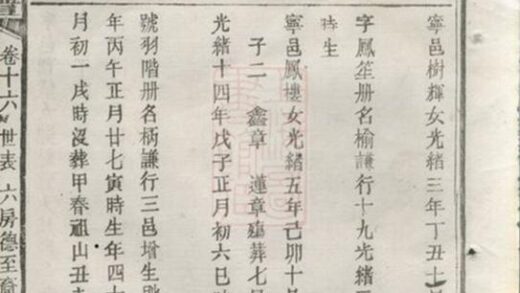 寧邑樹輝女光緒三年丁丑七
字鳳笙册名榆謙行十九光緒
時生
寧邑鳳樓女光緒五年己卯十
子二 鑫章 蓮章殤葬七
光緒十四年戊子正月初六巳時
號羽階册名柄謙行三邑增生
年丙午正月廿七寅時生年四
月初一戌時沒葬甲春祖山丑
卷十六 世表 六房德至